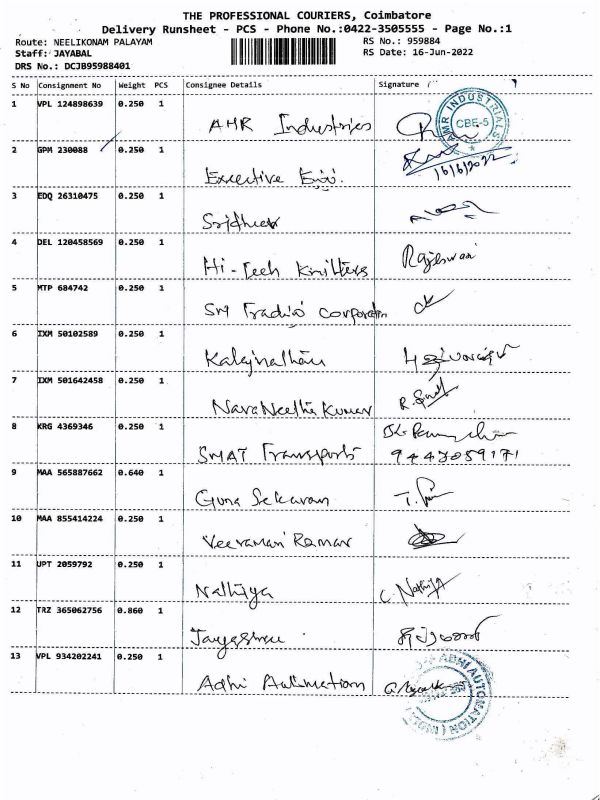 THE PROFESSIONAL COURIERS, Coimbatore
Delivery Runsheet - PCS - Phone No.:0422-3505555 - Page No.:1
Route: NEELIKONAM PALAYAM RS No.: 959884
Staff: JAYABAL RS Date: 16-Jun-2022
DRS No.: DCJB95988401
S No Consignment No Weight PCS Consignee Details Signature
1 VPL 124898639 0.250 1
AMR Industries
AMR INDUSTRIALS
CBE-5
2 GPM 230088 0.250 1
Executive
16/6/2022
3 EDQ 26310475 0.250 1
Sridher
4 DEL 120458569 0.250 1
Hi-Tech Knitters Rajeswari
5 MTP 684742 0.250 1
SM Corporation
6 IXM 50102589 0.250 1
7 IXM 501642458 0.250 1
NavaNeetha Kumar
8 KRG 4369346 0.250 1
SMAT Transports
9443059171
9 MAA 565887662 0.640 1
Guna Sekaran
10 MAA 855414224 0.250 1
Veeramani Raman
11 UPT 2059792 0.250 1
Nathiya C. Nathiya
12 TRZ 365062756 0.860 1
Jayashree
13 VPL 934202241 0.250 1
Adhi Automation
ADHI AUTOMATION (INDIA)